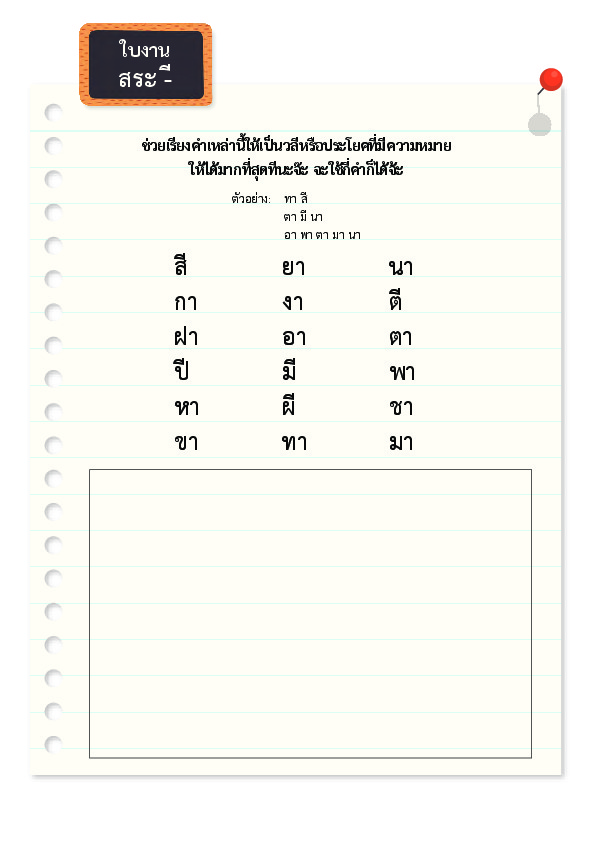 ใบงาน
สระ -ี
ช่วยเรียงคำเหล่านี้ให้เป็นวลีหรือประโยคที่มีความหมาย
ให้ได้มากที่สุดทีนะจ๊ะ จะใช้กี่คำก็ได้จ้ะ
ตัวอย่าง: ทา สี
ตา มี นา
อา พา ตา มา นา
สี ยา นา
กา งา ตี
ฝา อา ตา
ปี มี พา
หา ผี ชา
ขา ทา มา